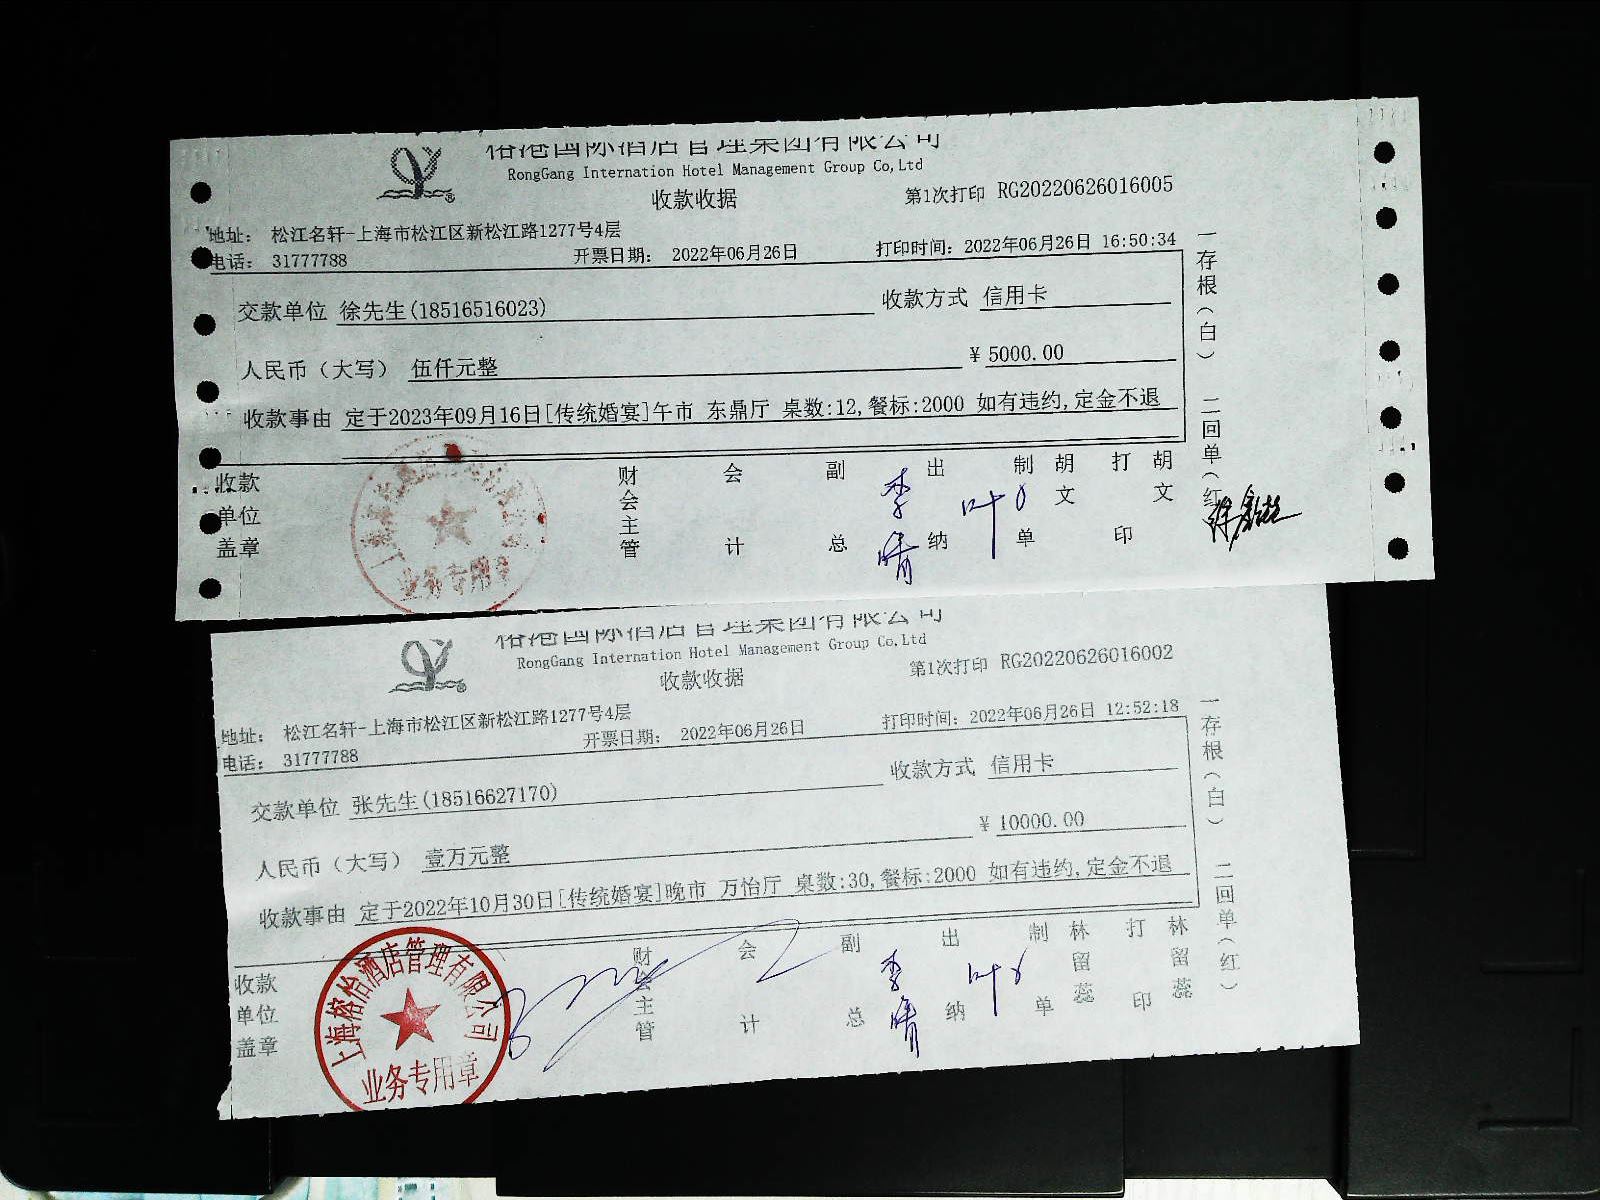 榕港国际酒店管理集团有限公司
RongGang Internation Hotel Management Group Co,Ltd
收款收据
第1次打印 RG20220626016005
地址： 松江名轩-上海市松江区新松江路1277号4层
电话： 31777788
开票日期： 2022年06月26日
打印时间：2022年06月26日 16:50:34
交款单位 徐先生(18516516023)
收款方式 信用卡
人民币（大写） 伍仟元整
¥ 5000.00
收款事由 定于2023年09月16日[传统婚宴]午市 东鼎厅 桌数:12,餐标:2000 如有违约,定金不退
收款单位盖章
财会主管
会计
副总
李晴
出纳
叶
制单
胡文
打印
胡文
一存根（白）
二回单（红
业务专用章
榕港国际酒店管理集团有限公司
RongGang Internation Hotel Management Group Co,Ltd
收款收据
第1次打印 RG20220626016002
地址： 松江名轩-上海市松江区新松江路1277号4层
电话： 31777788
开票日期： 2022年06月26日
打印时间：2022年06月26日 12:52:18
交款单位 张先生(18516627170)
收款方式 信用卡
人民币（大写） 壹万元整
¥ 10000.00
收款事由 定于2022年10月30日[传统婚宴]晚市 万怡厅 桌数:30,餐标:2000 如有违约,定金不退
收款单位盖章
财会主管
会计
副总
李晴
出纳
叶
制单
林留蕊
打印
林留蕊
一存根（白）
二回单（红）
上海榕怡酒店管理有限公司
业务专用章